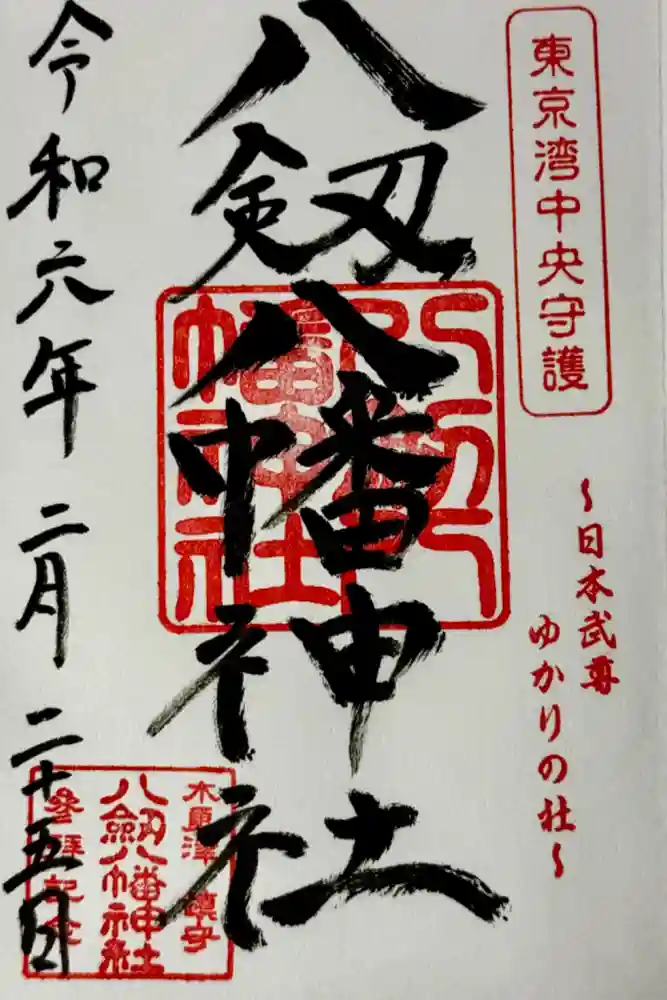 東京湾中央守護
〜日本武尊
ゆかりの社〜
八劔八幡神社
八劔八
幡神社
木更津 鎮守
八劔八幡神社
參拝記念
令和六年二月二十五日